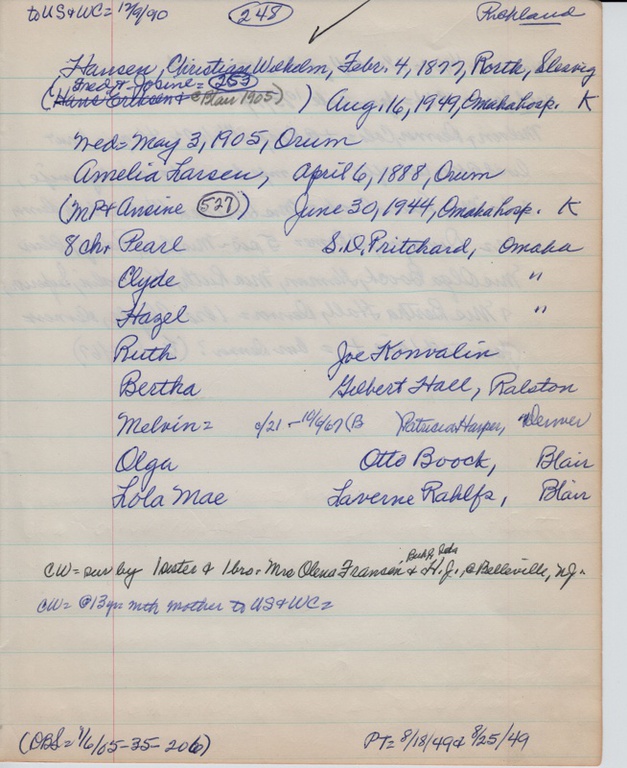 to US & WC = 12/9/90 248 Richland
Hansen, Christian Wilhelm, Febr. 4, 1877, Rorth, Slesvig
(Fred & Josine = 253
(Hans Eriksen & @ Blair 1905) ) Aug. 16, 1949, Omaha hosp. K
wed = May 3, 1905, Orum
Amelia Larsen, April 6, 1888, Orum
(MP & Ansine 527) June 30, 1944, Omaha hosp. K
8 chr Pearl S.D. Pritchard, Omaha
Clyde "
Hazel "
Ruth Joe Konvalin
Bertha Gilbert Hall, Ralston
Melvin = c/21 - 10/6/67 (B Patricia Harper, Denver
Olga Otto Boock, Blair
Lola Mae Laverne Rahlfs, Blair
CW = sur by 1 sister & 1 bro. Mrs Olena Fransen & H.J., @ Belleville, N.J.
CW = @ 13 yrs with mother to US & WC =
(OBS = 1/6/05-35-206) PT = 8/18/49 & 8/25/49